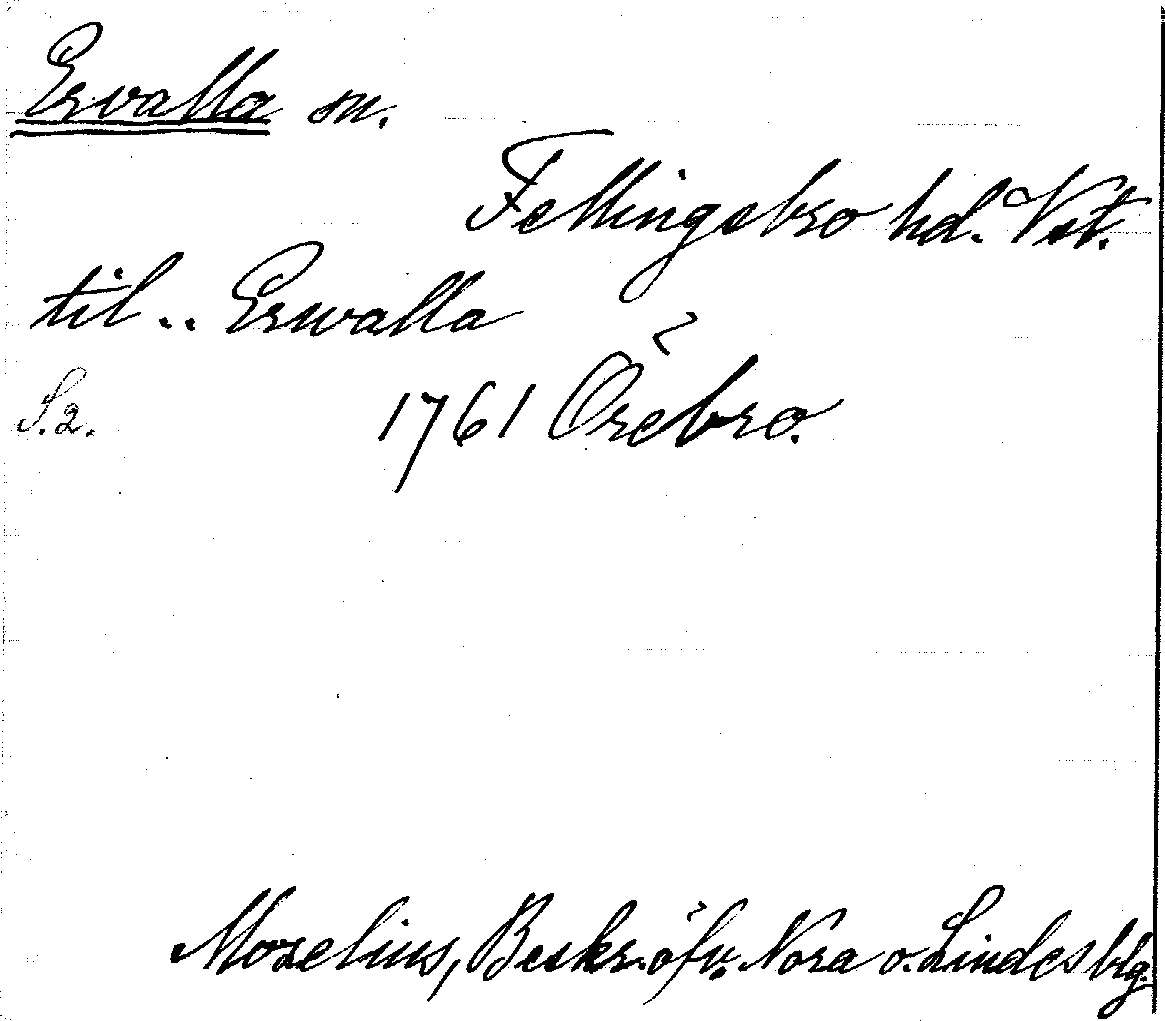 Ervalla sn.
Fellingsbro hd. Vst.
til .. Erwalla
S. 2. 1761 Örebro.
Morelius, Beskr. öfv. Nora o. Lindes blg.